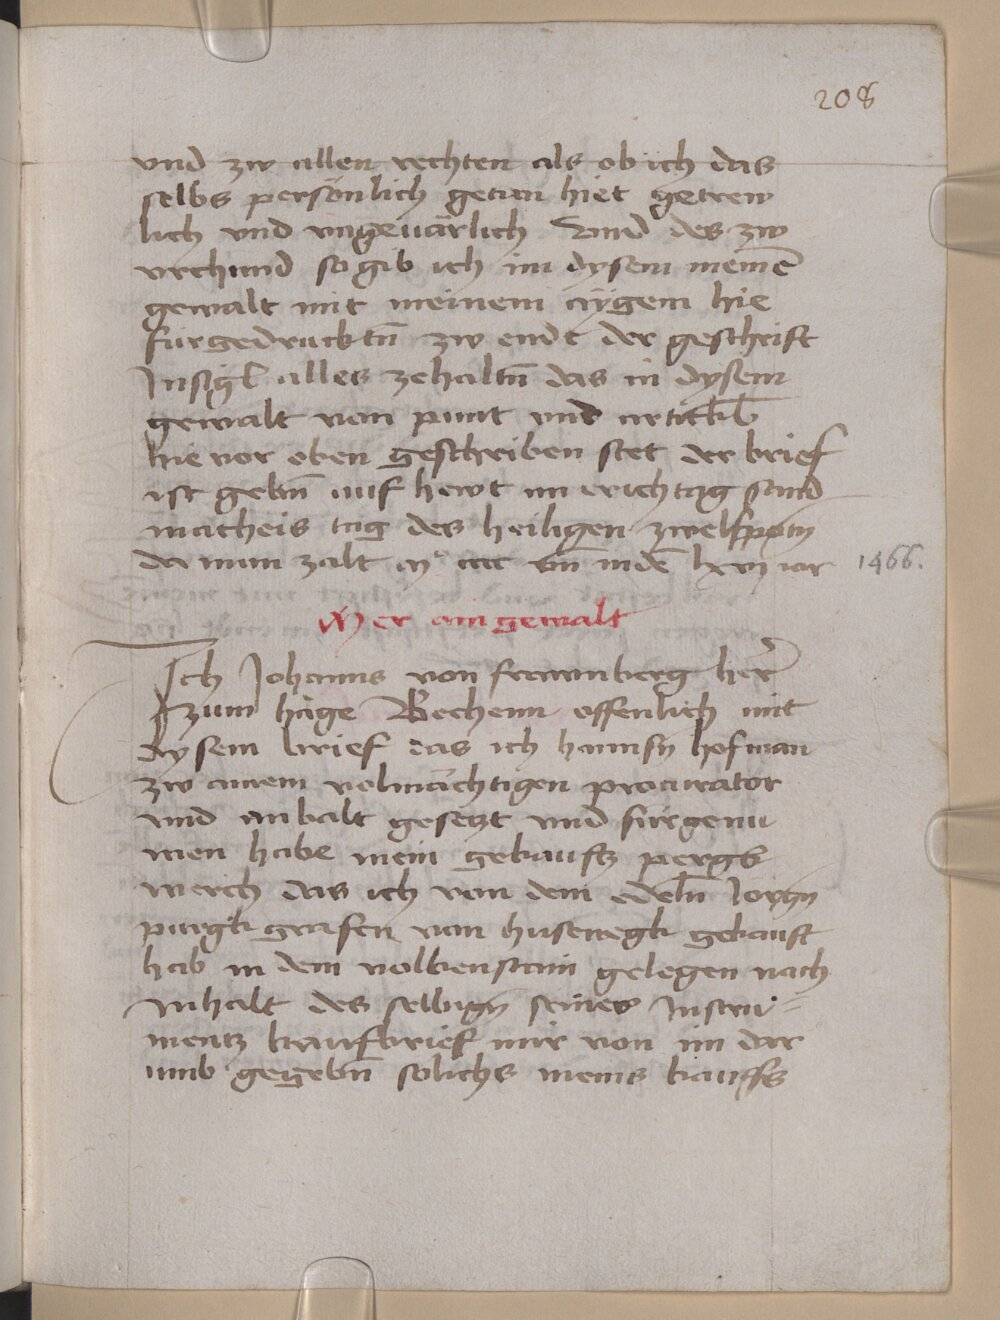 208
vnd zw allen rechten als ob ich das
selbs persönlich getan hiet getrew
lich vnd vngeuärlich Vnd des zw
vrchund so gib ich im dysem meinē
gewalt mit meinem aygem hie
fürgedrucktn̄ zw endt der geschrift
Insigl alles zehaltn̄ das in dysem
gewalt von punt vnd artickl
hie vor oben geschriben stet der brief
ist gebn̄ auf hewt im erichtag sand
matheis tag des heiligen
da man zalt cccc vn̄ indē lxvj jar
1466.
Mer ain gewalt
Ich Johanns von frawnberg her̄
zum hage Bechenn offenlich mit
dysem brief das ich hannsn̄ hofman
zw ainem volmächtigen procurator
vnd anbalt gesetzt vnd fürgenu
men habe mein gekaufts pergk
werch das ich von dem edeln̄ Jorgn̄
purgk grafen von gekauft
hab in dem volkenstain gelegen nach
Inhalt des selbign̄ seines Instru=
mentz kaufbrief mir von im dar
umb gegebn̄ solichs meins kauffs